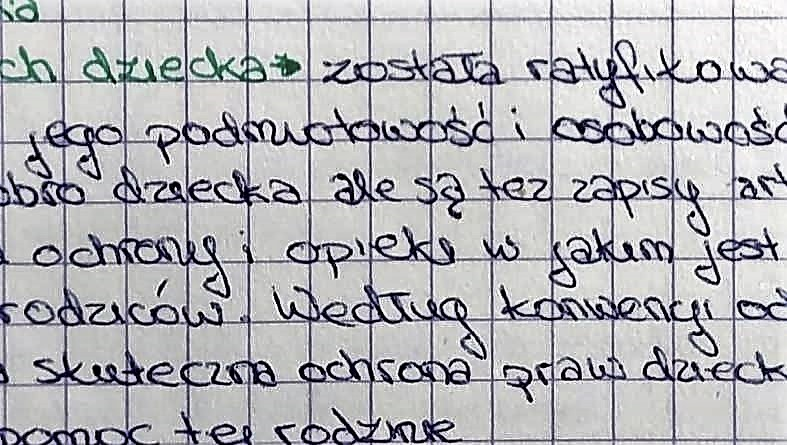 ch dziecka → została ratyfikowa
jego podmiotowość i osobowość
obro dziecka ale są też zapisy art
ochrony i opieki w jakim jest
rodziców. Według konwencji od
skuteczna ochrona praw dzieck
pomoc tej rodzinie